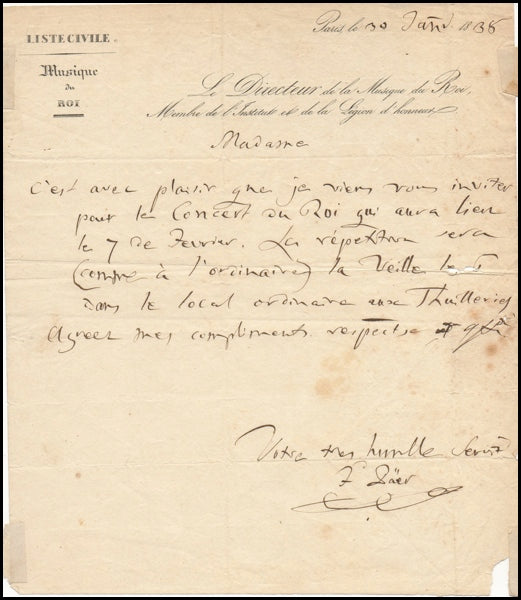 LISTE CIVILE.
Musique
du
ROI
Paris le 30 Janv 1836
Le Directeur de la Musique du Roi,
Membre de l'Institut et de la Légion d'honneur,
Madame
C'est avec plaisir que je viens vous inviter
pour le Concert du Roi qui aura lieu
le 7 de Fevrier. La répetition sera
(comme à l'ordinaire) la Veille le 6
dans le local ordinaire aux Thuilleries
Agreez mes compliments respectse
Votre tres humble Servit
F Päer